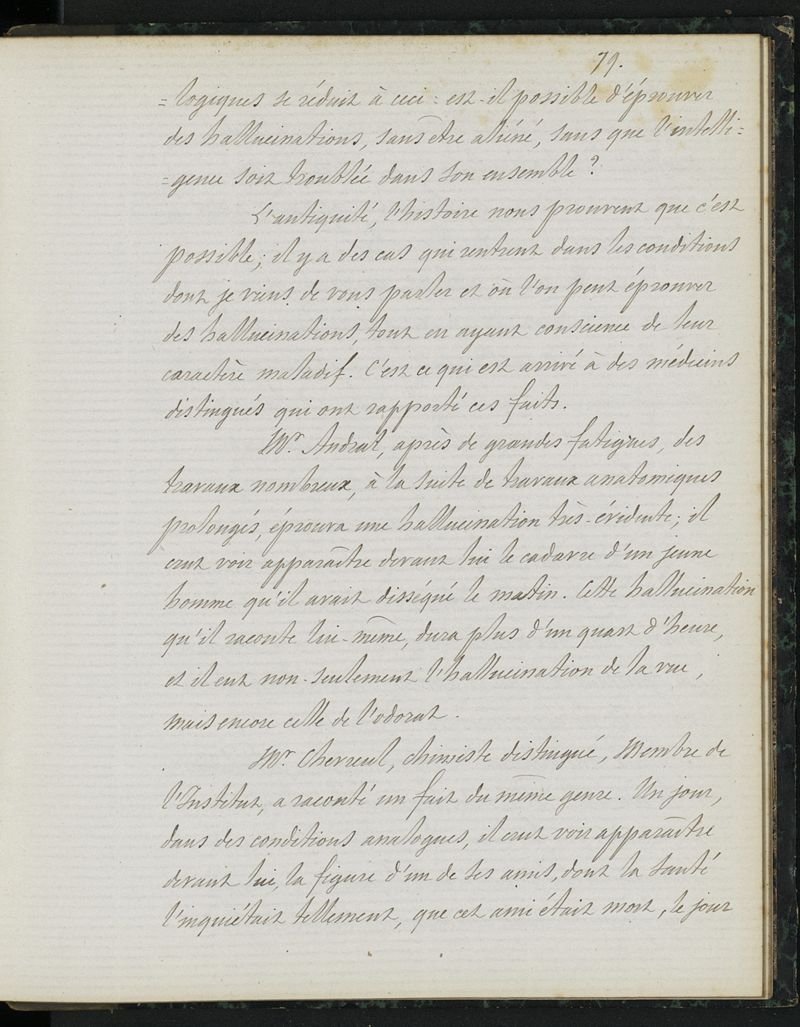 79.
=logiques se réduit à ceci = est-il possible d'éprouver
des hallucinations, sans être aliéné, sans que l'intelli=
=gence soit troublée dans son ensemble ?
L'antiquité, l'histoire nous prouvent que c'est
possible ; il y a des cas qui rentrent dans les conditions
dont je viens de vous parler et où l'on peut éprouver
des hallucinations, tout en ayant conscience de leur
caractère maladif. C'est ce qui est arrivé à des médecins
distingués qui ont rapporté ces faits.
Mr. Andral, après de grandes fatigues, des
travaux nombreux, à la suite de travaux anatomiques
prolongés, éprouva une hallucination très-évidente ; il
crut voir apparaître devant lui le cadavre d'un jeune
homme qu'il avait disséqué le matin. Cette hallucination
qu'il raconte lui-même, dura plus d'un quart d'heure,
et il eut non-seulement l'hallucination de la vue,
mais encore celle de l'odorat.
Mr. Chevreul, chimiste distingué, Membre de
l'Institut, a raconté un fait du même genre. Un jour,
dans des conditions analogues, il crut voir apparaître
devant lui, la figure d'un de ses amis, dont la santé
l'inquiétait tellement, que cet ami était mort, le jour